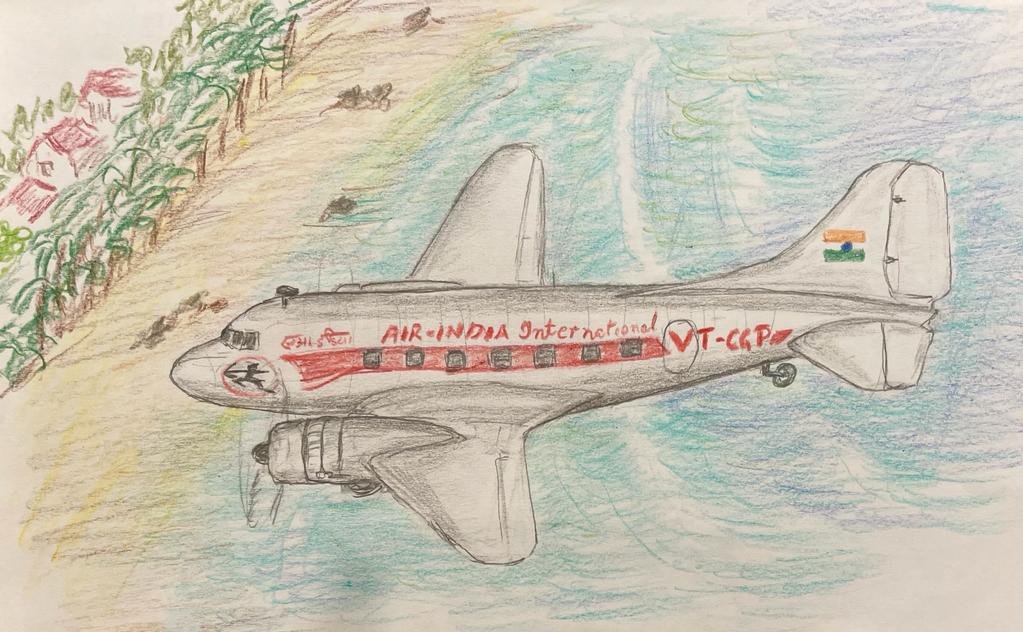 एअर-इंडिया AIR-INDIA International
VT-CGP